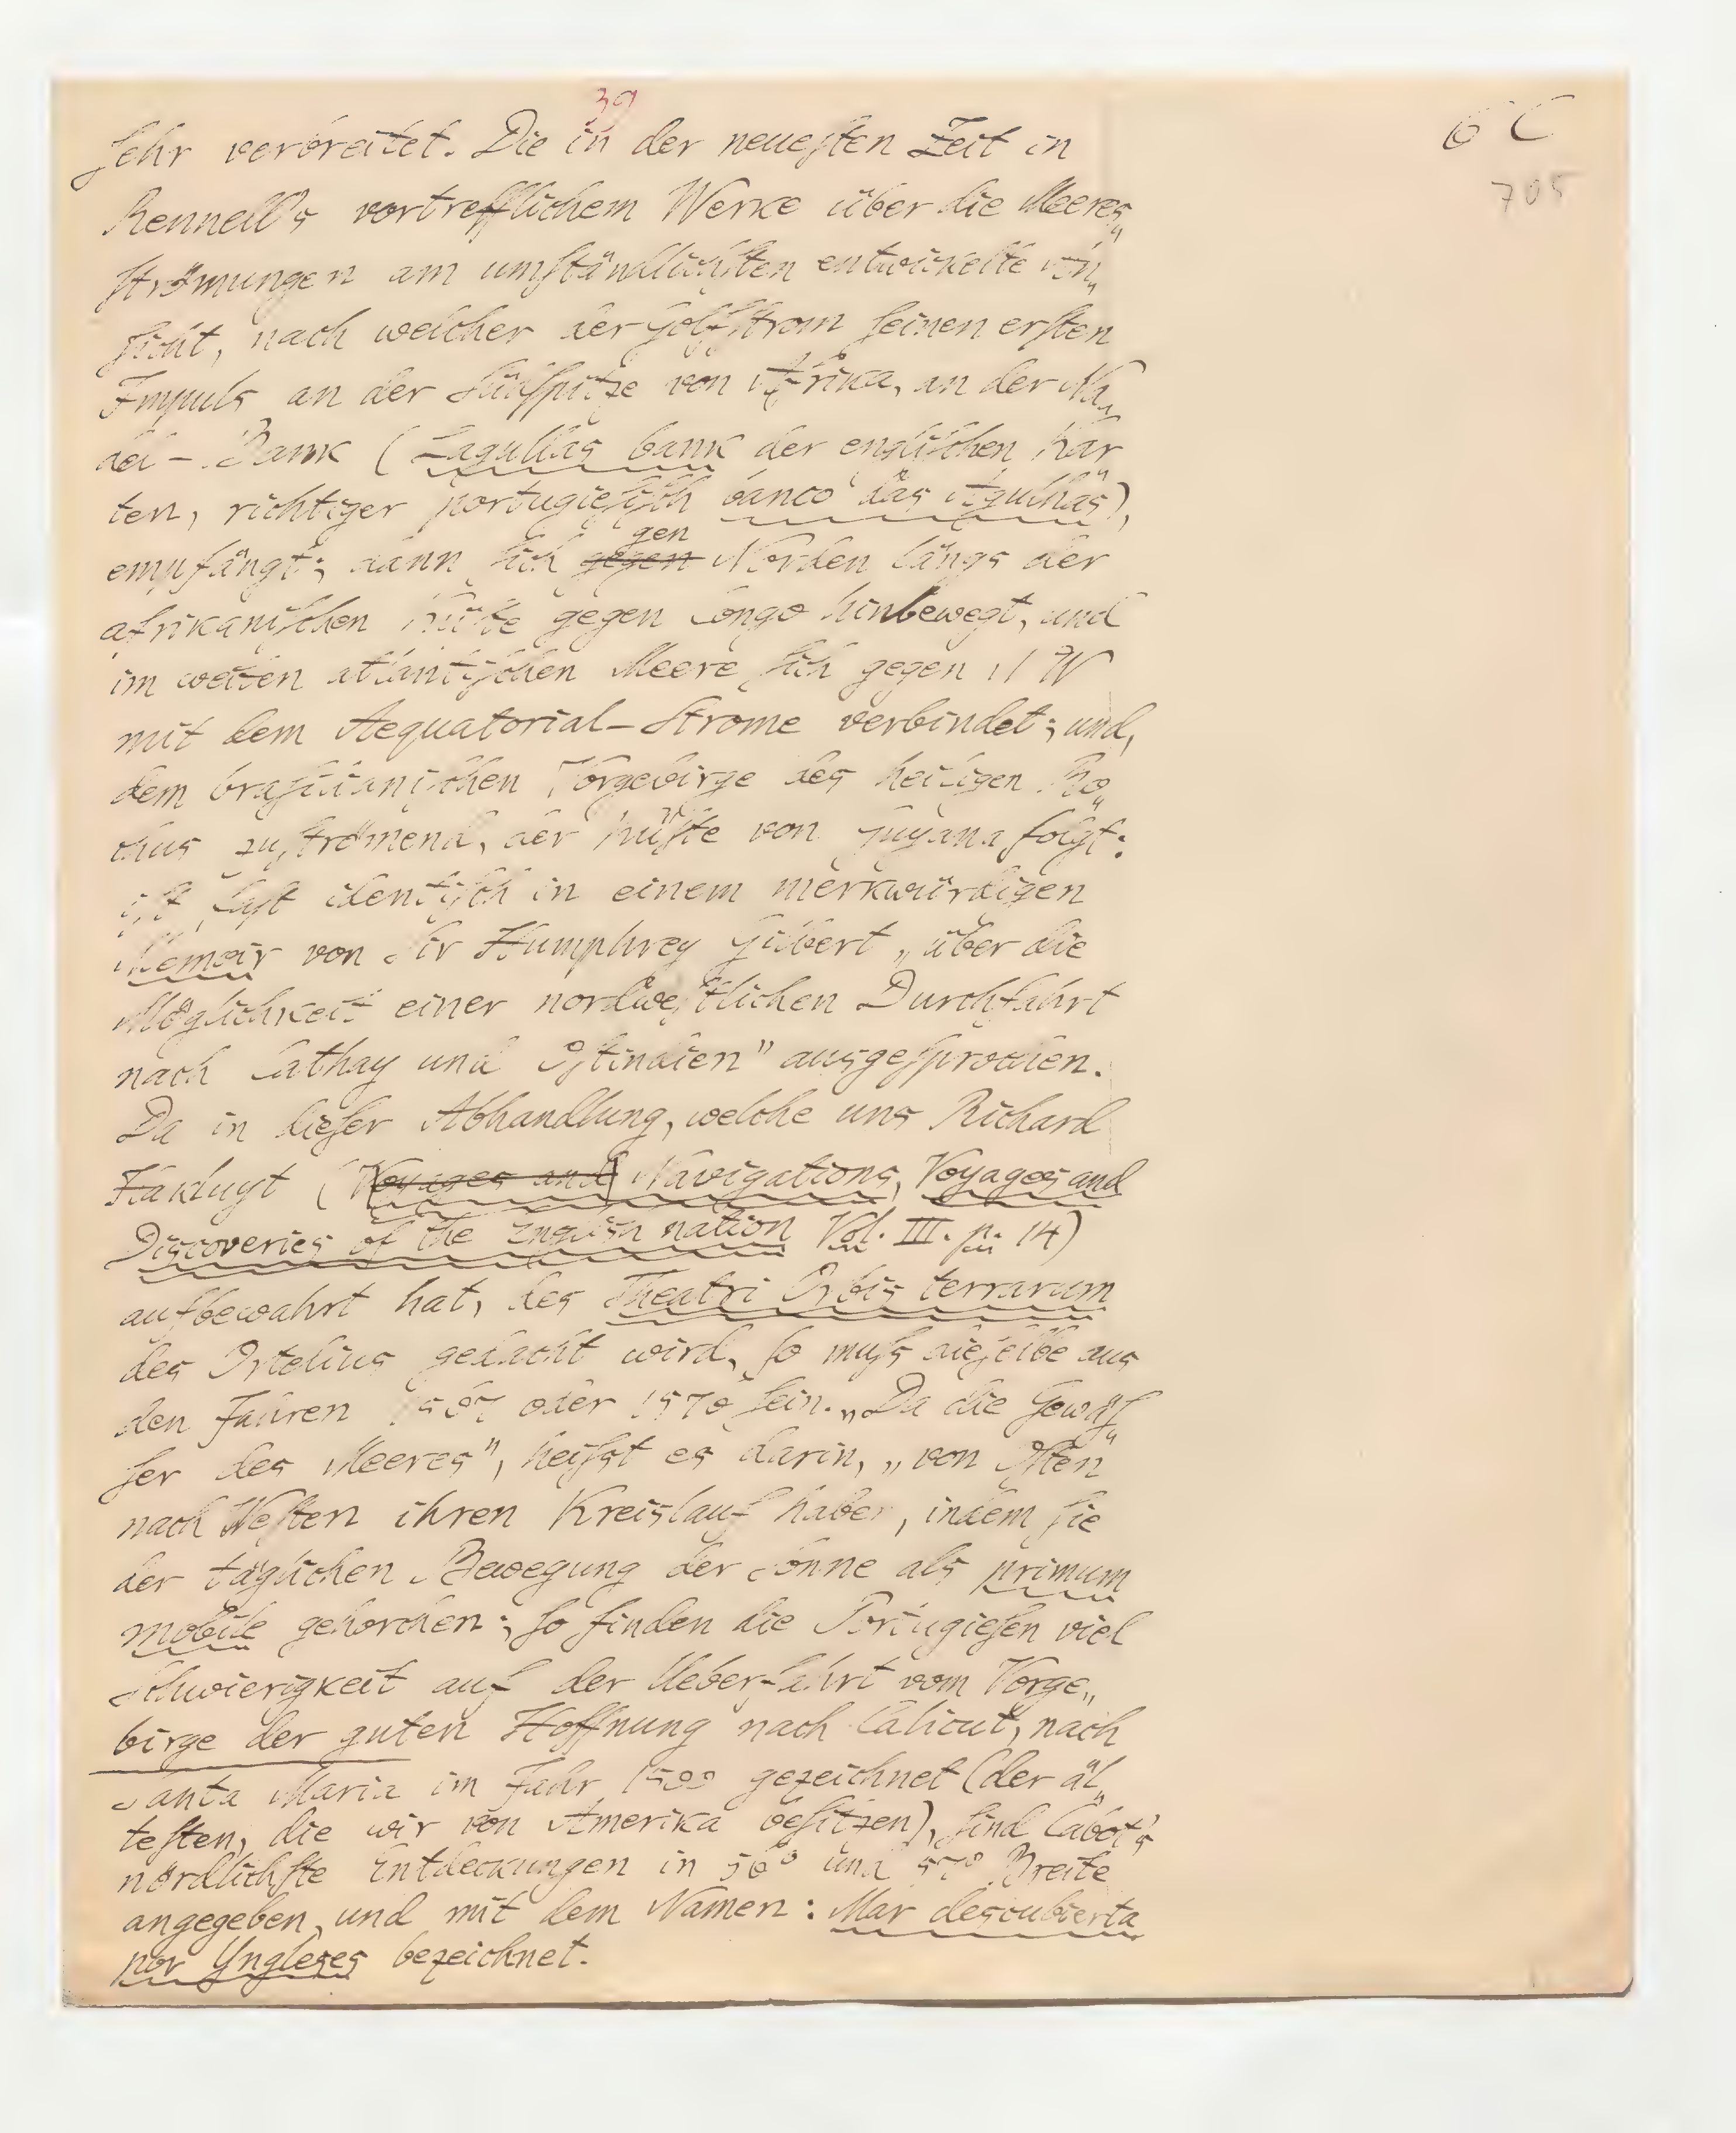 39
6 C
705
sehr verbreitet. Die in der neuesten Zeit in
Rennell's vortrefflichem Werke über die Meeres„
strömungen am umständlichsten entwickelte An„
sicht, nach welcher der Golfstrom seinen ersten
Impuls an der Südspitze von Afrika, an der Na„
del-Bank (Lagullas bank der englischen Kar„
ten, richtiger portugiesisch banco das Agulhas),
empfängt; dann sich gegen gen Norden längs der
afrikanischen Küste gegen Congo hinbewegt, und
im weiten atlantischen Meere sich gegen NW
mit dem Aequatorial-Strome verbindet; und,
dem brasilianischen Vorgebirge des heiligen Ro„
chus zuströmend, der Küste von Guyana folgt:
ist fast identisch in einem merkwürdigen
Memoir von Sir Humphrey Gilbert „über die
Möglichkeit einer nordwestlichen Durchfahrt
nach Cathay und Ostindien" ausgesprochen.
Da in dieser Abhandlung, welche uns Richard
Hakluyt (Voyages and Navigations, Voyages and
Discoveries of the English nation Vol. III. p. 14)
aufbewahrt hat, des Theatri Orbis terrarum
des Ortelius gedacht wird, so muss dieselbe aus
den Jahren 1567 oder 1570 sein. „Da die Gewäs„
ser des Meeres", heisst es darin, „von Osten
nach Westen ihren Kreislauf haben, indem sie
der täglichen Bewegung der Sonne als primum
mobile gehorchen; so finden die Portugiesen viel
Schwierigkeit auf der Ueberfahrt vom Vorge„
birge der guten Hoffnung nach Calicut, nach
Santa Maria im Jahr 1500 gezeichnet (der äl„
testen, die wir von Amerika besitzen), sind Cabot's
nördlichste Entdeckungen in 56° und 57° Breite
angegeben, und mit dem Namen: Mar descubierta
por Yngleses bezeichnet.